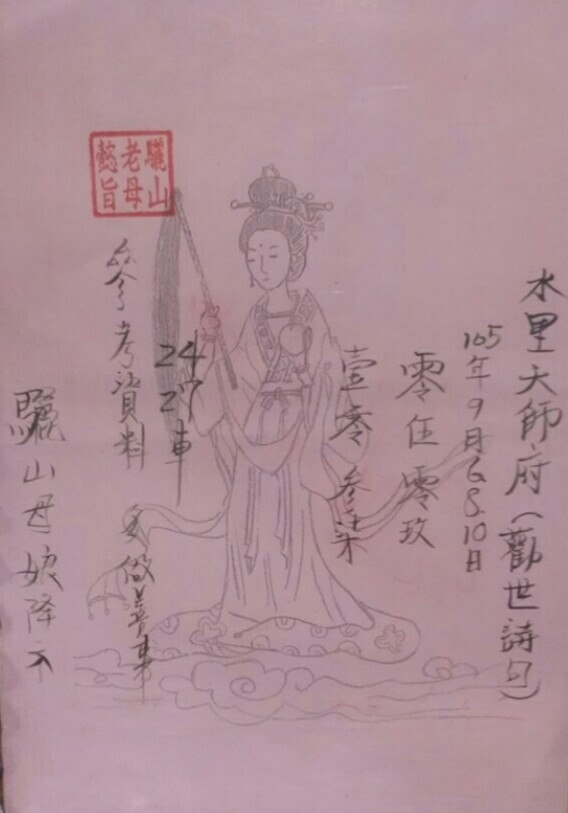 水里大師府(勸世詩句)
105年9月6.8.10日
零伍零玖
壹零參柒
24
27車
多做善事
參考資料
驪山老母懿旨
驪山母娘降示